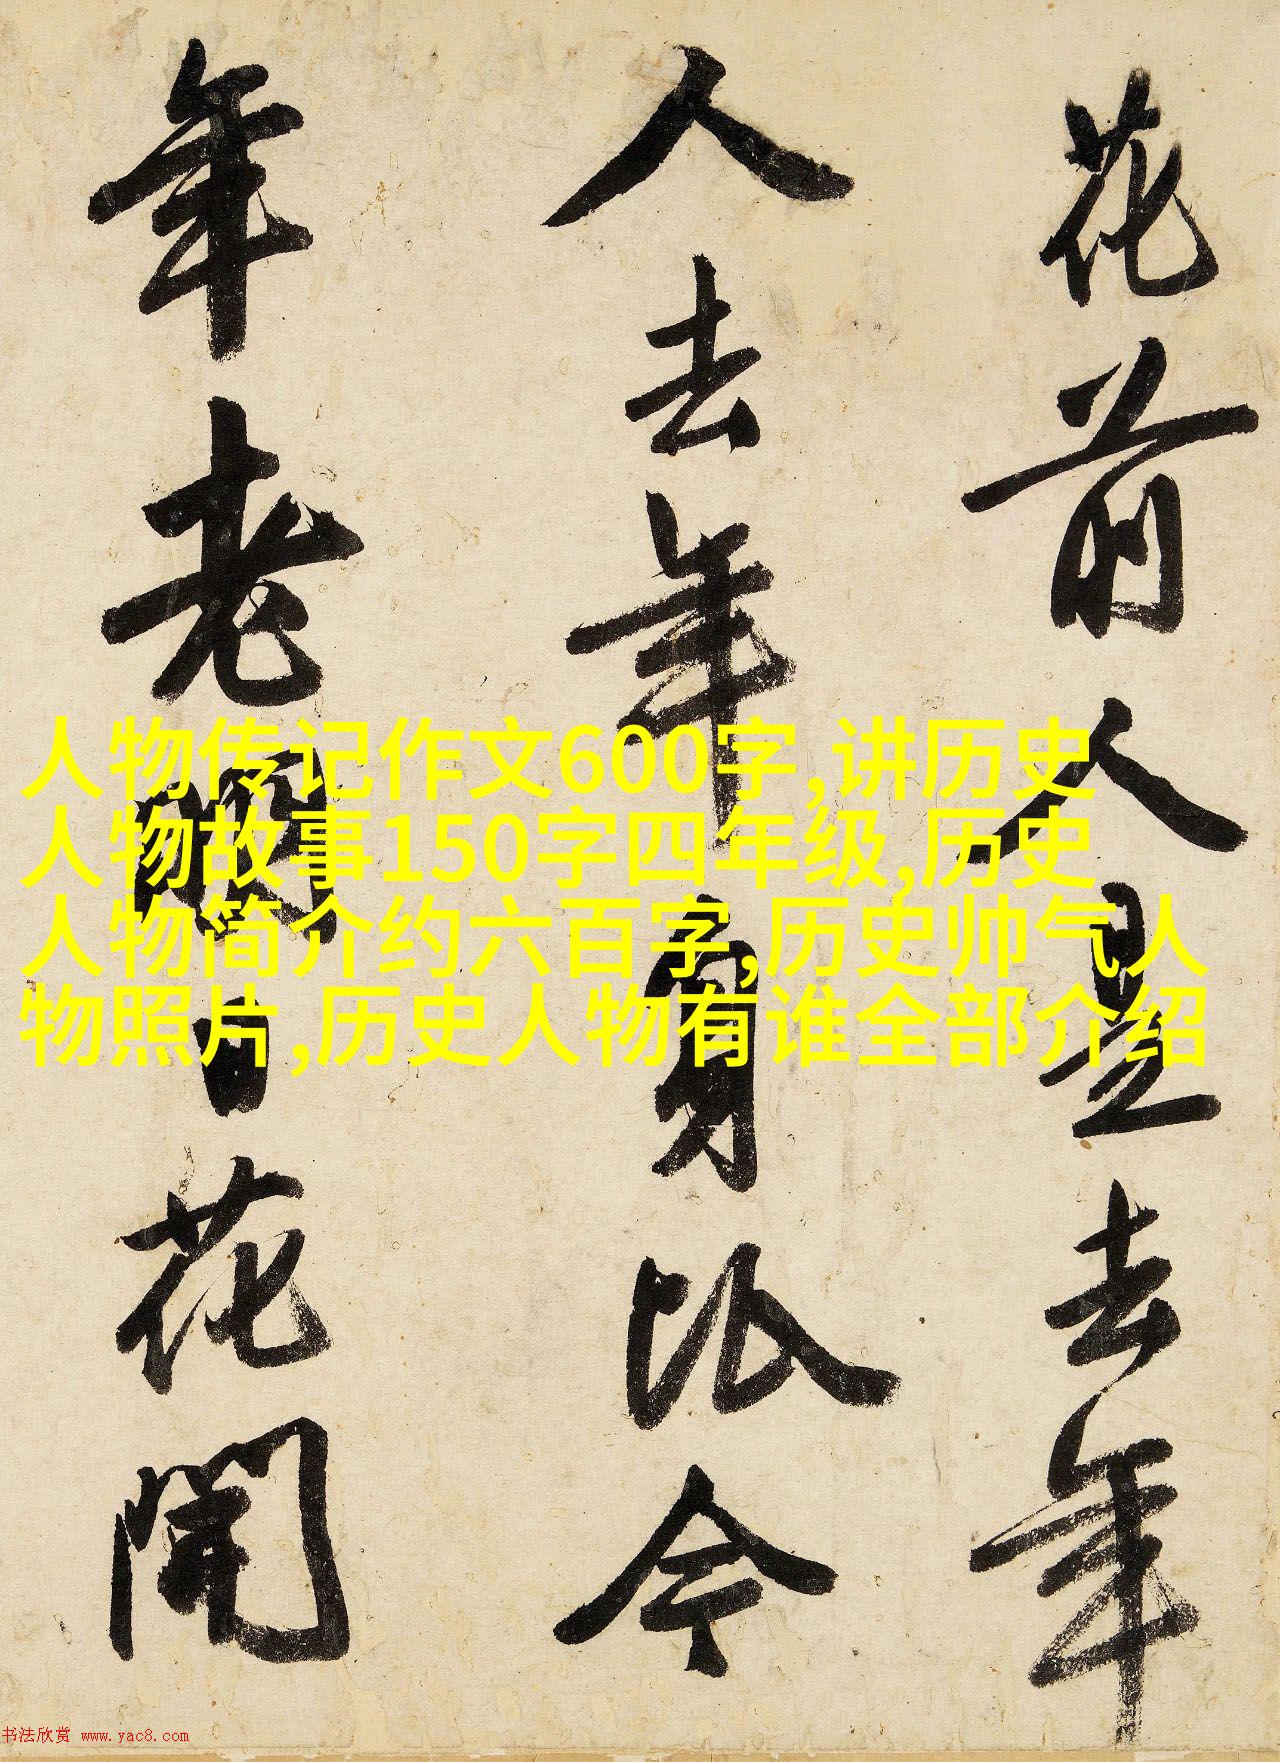 花前人是去年
人去年身比今
年老明日花開
人物传记作文600字,讲历史
人物故事150字四年级,历史
人物简介约六百字,历史帅气人
物照片,历史人物有谁全部介绍
书法欣赏 www.yac8.com